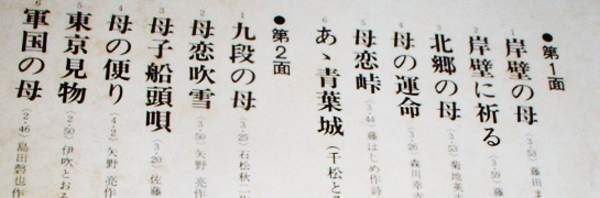 ●第1面
1 岸壁の母 (3・53) 藤田ま
2 岸壁に祈る (3・59) 藤
3 北郷の母 (3・53) 菊地英
4 母の運命 (3・26) 森川幸
5 母恋峠 (3・44) 藤はじめ作詩
6 あゝ青葉城 (千松と
●第2面
1 九段の母 (3・25) 石松秋二
2 母恋吹雪 (3・50) 矢野亮作
3 母子船頭唄 (3・20) 佐藤
4 母の便り (4・2) 矢野亮作
5 東京見物 (2・50) 伊吹とおる
6 軍国の母 (2・46) 島田磬也作